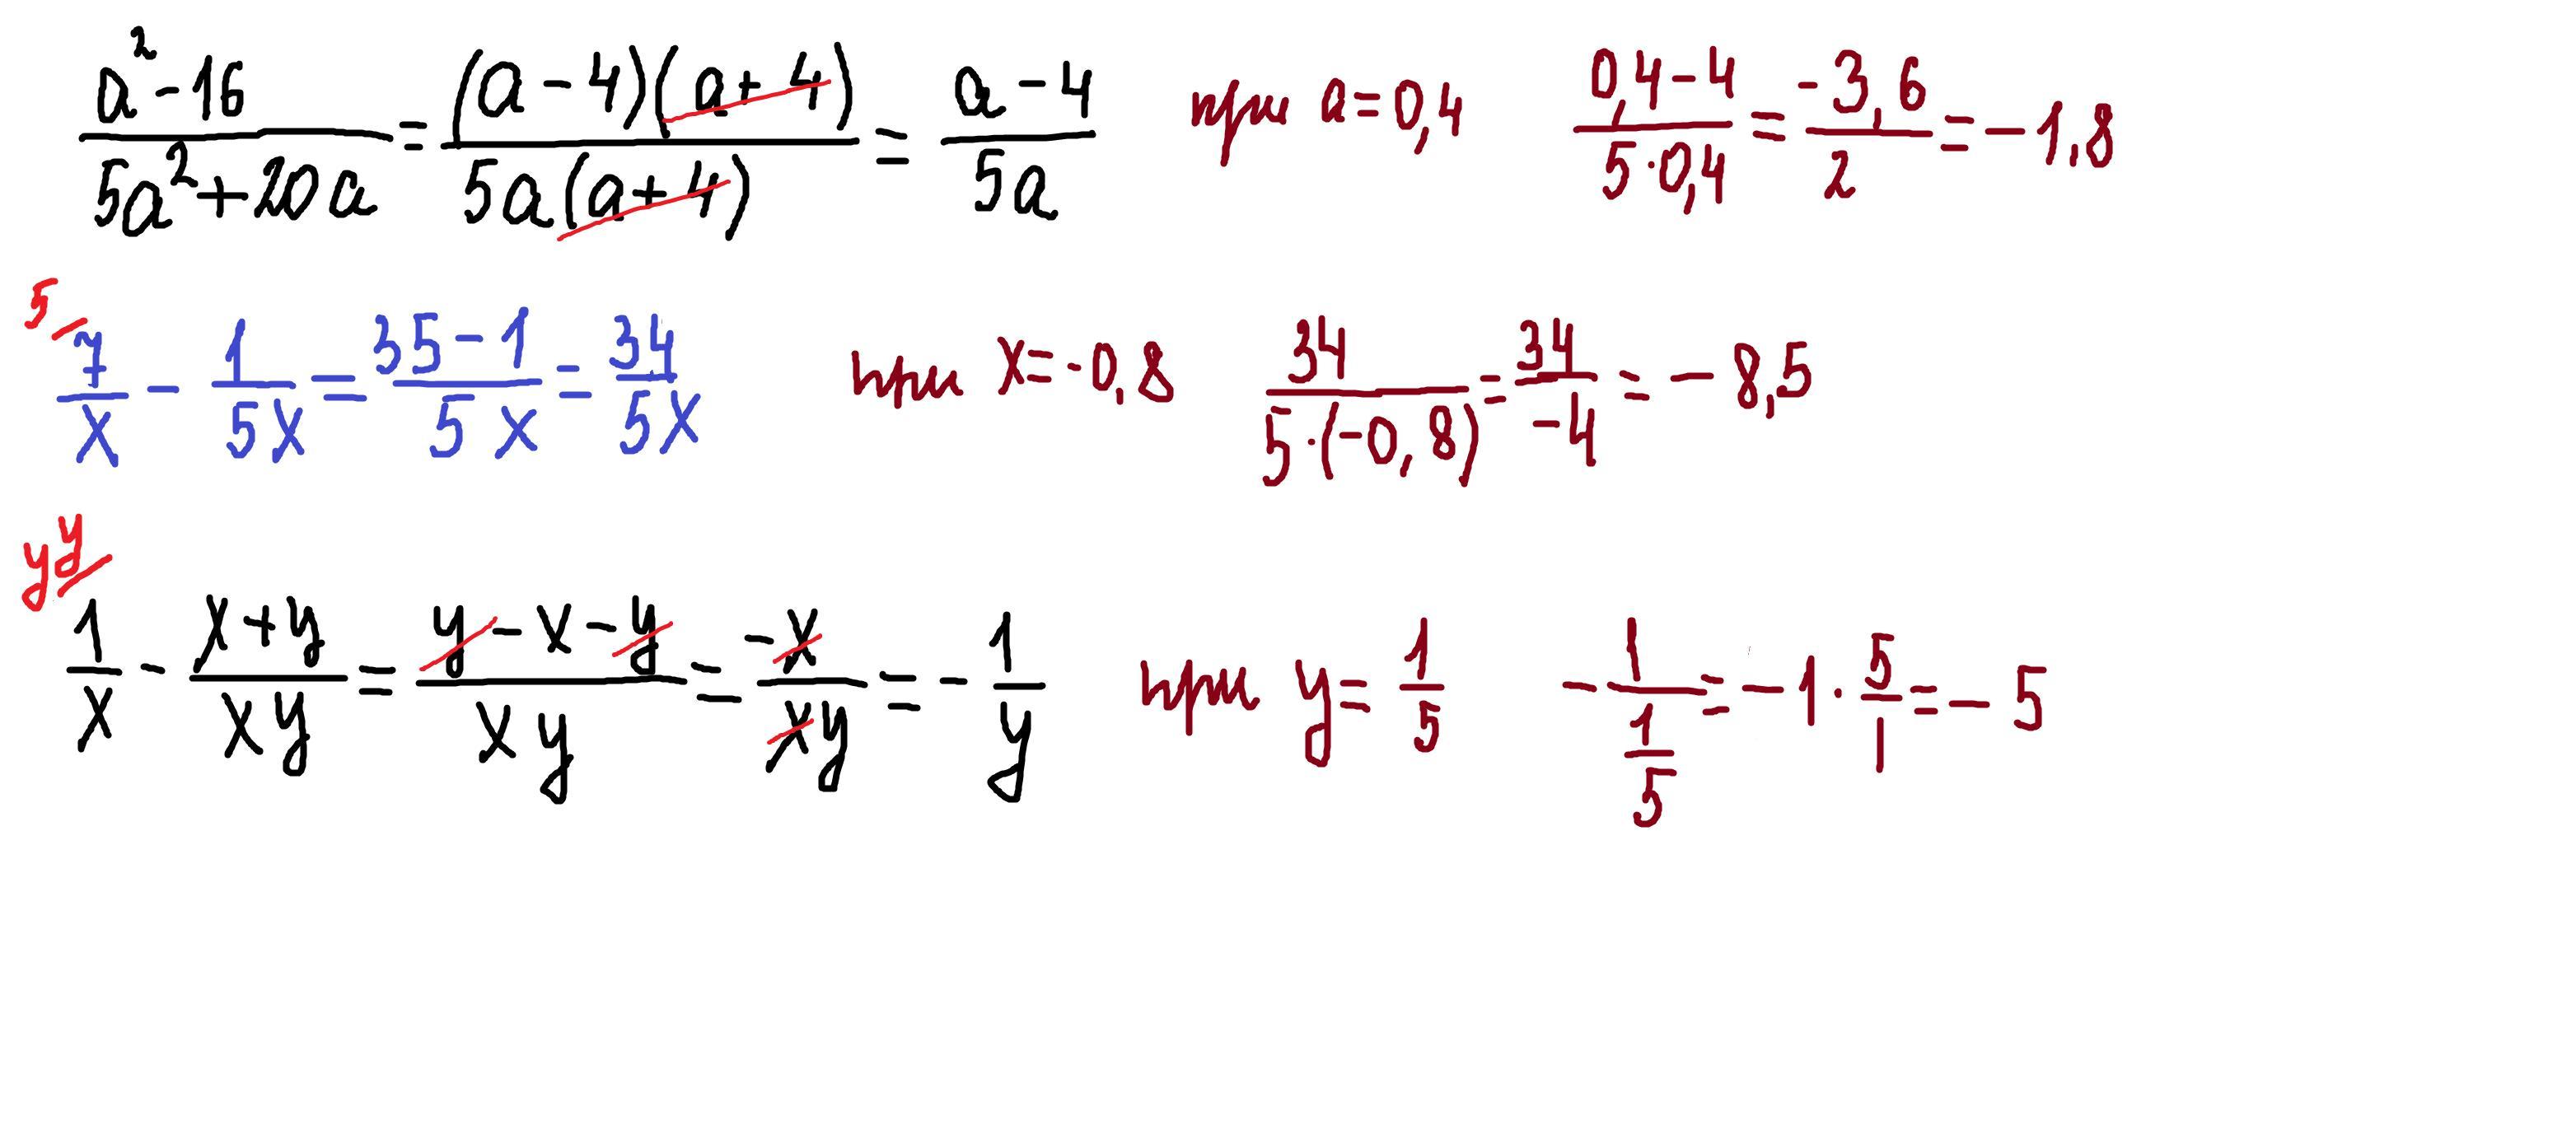 (a² - 16)/(5a² + 20a) = ((a - 4)(a + 4))/(5a(a + 4)) = (a - 4)/(5a) при a = 0,4 (0,4 - 4)/(5·0,4) = (-3,6)/2 = -1,8
5
7/x - 1/(5x) = (35 - 1)/(5x) = 34/(5x) при x = -0,8 34/(5·(-0,8)) = 34/(-4) = -8,5
y y
1/x - (x + y)/(xy) = (y - x - y)/(xy) = (-x)/(xy) = -1/y при y = 1/5 -1/(1/5) = -1·5/1 = -5